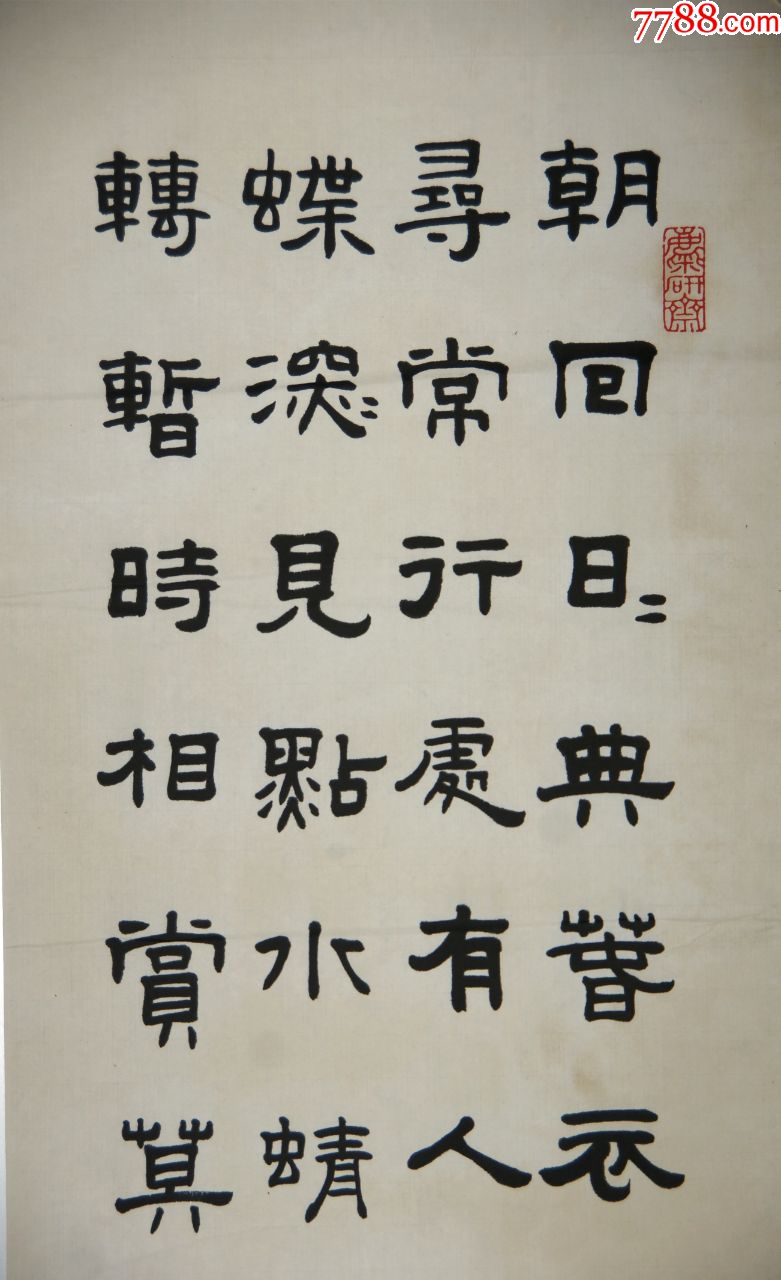 7788.com
朝回日〻典萅衣
尋常行處有人
蝶深〻見點水蜻
轉暫時相賞莫
研齋